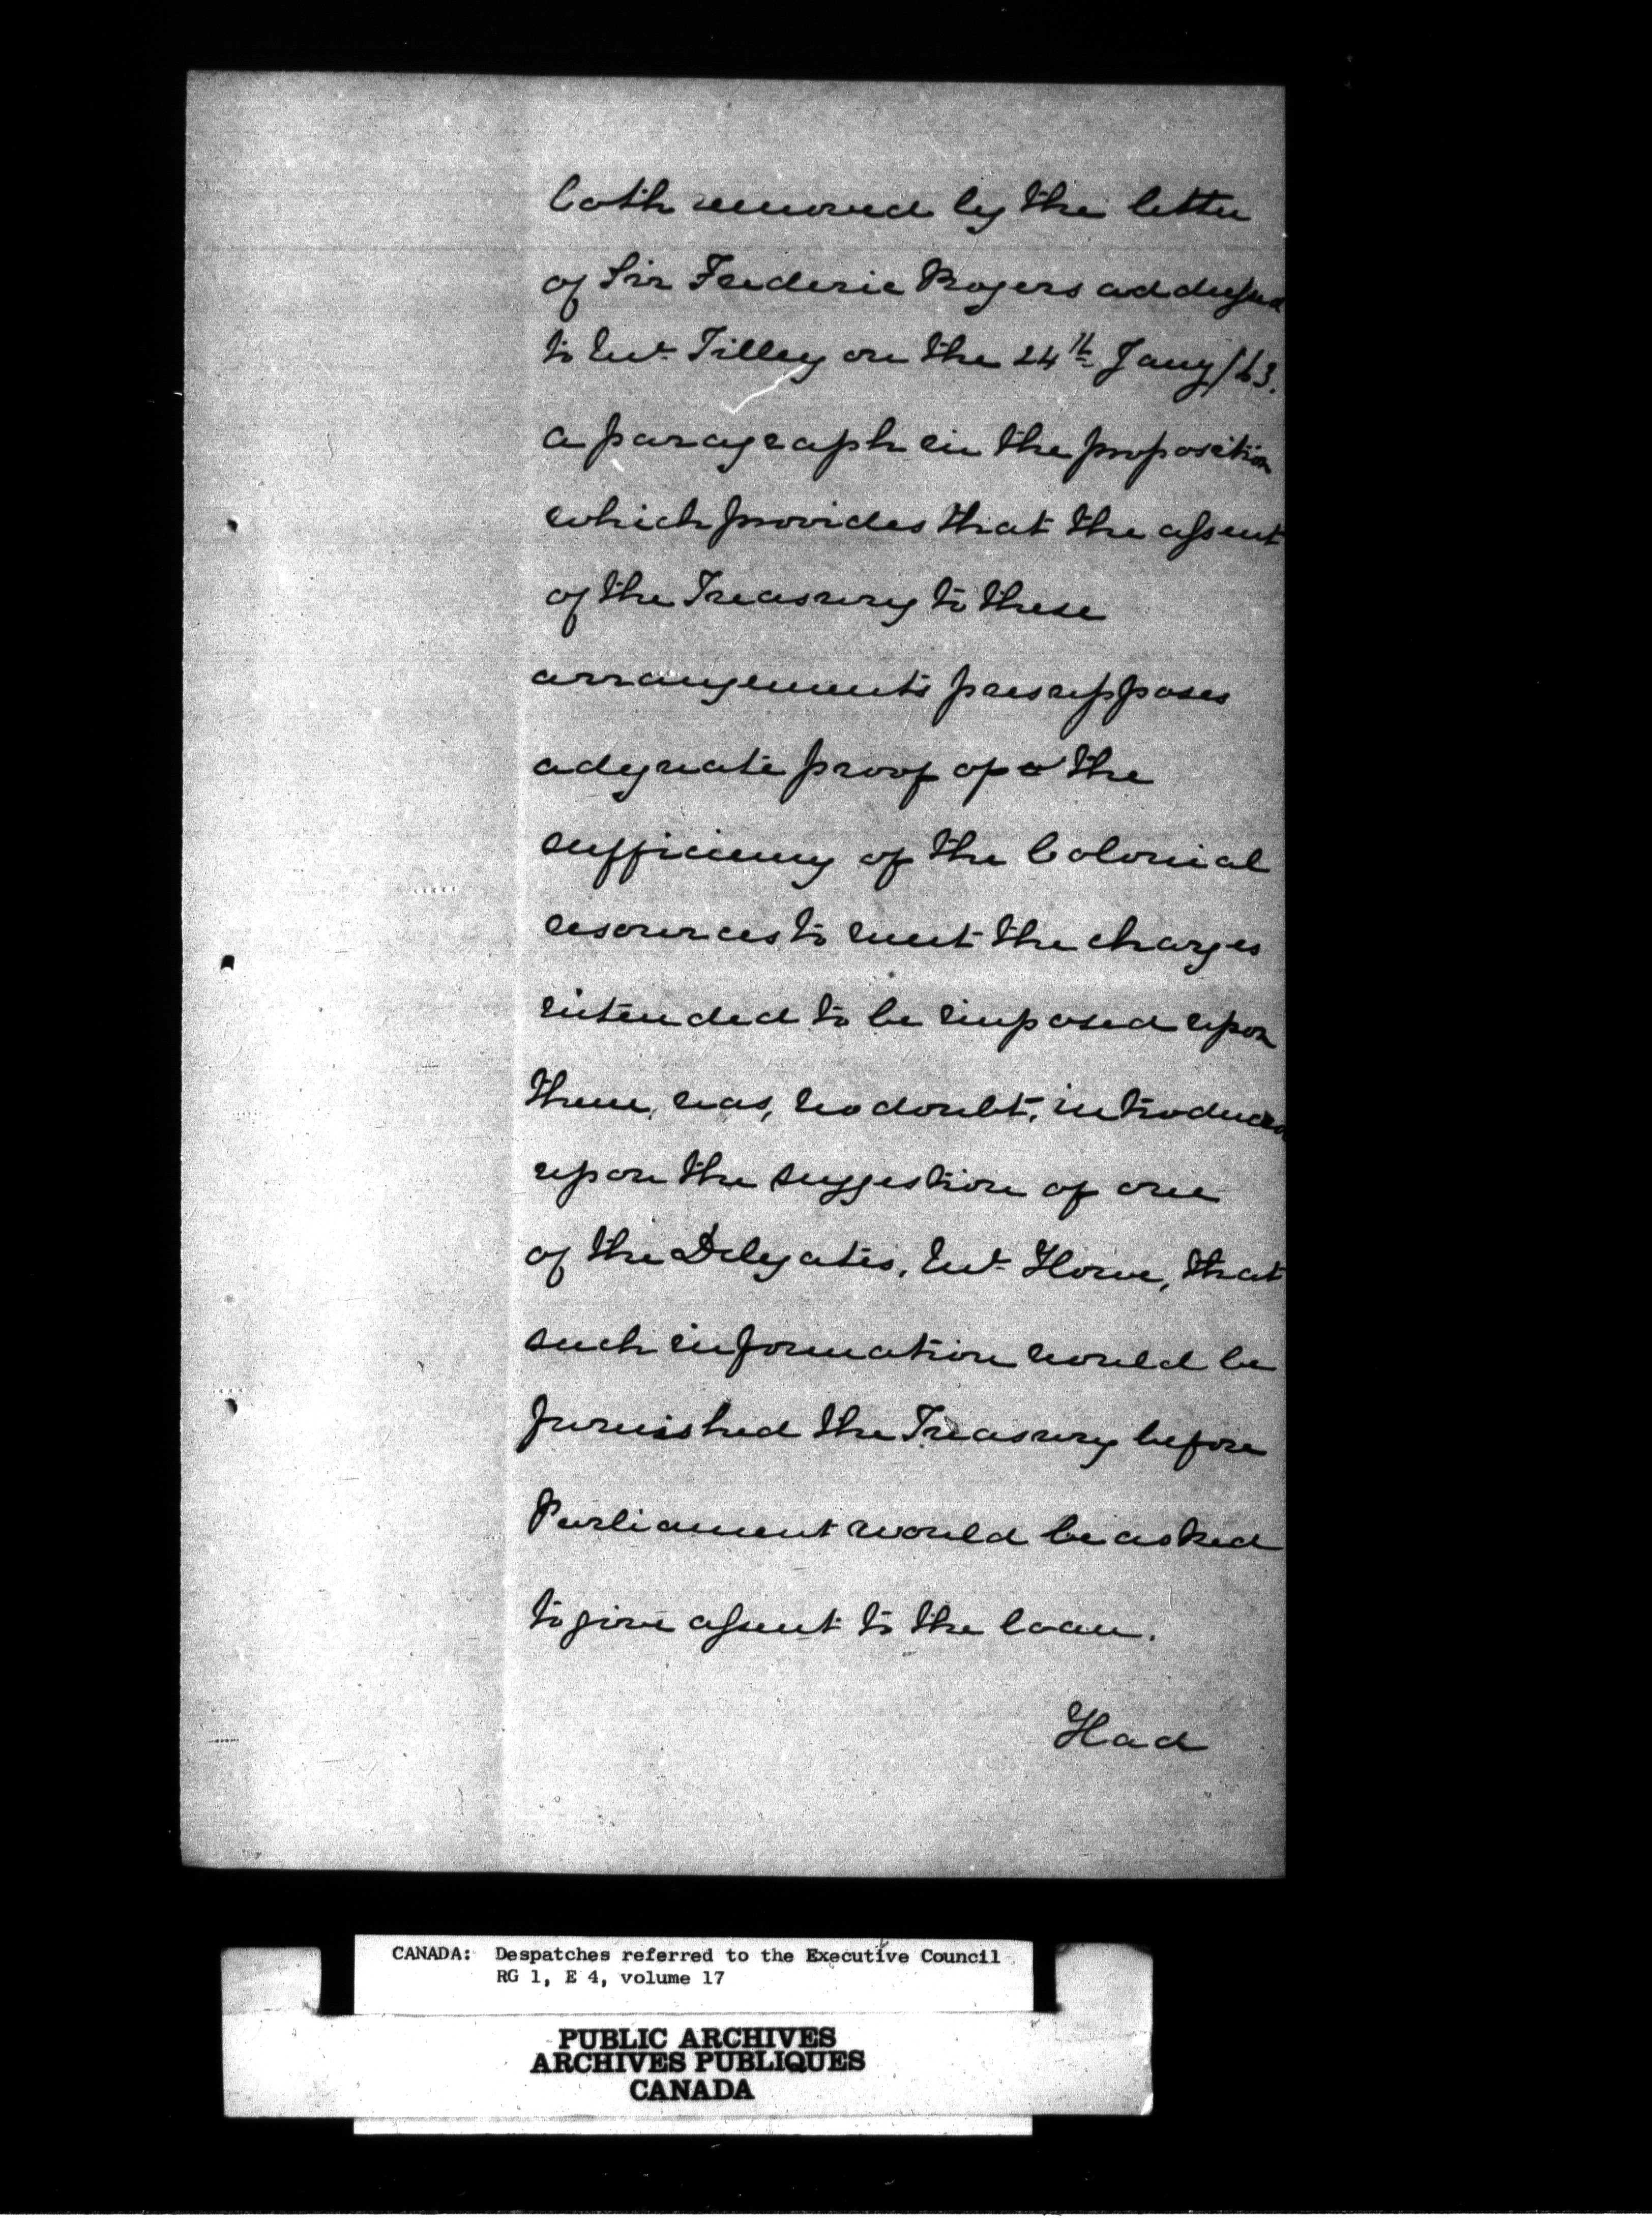 both removed by the letter
of Sir Frederic Rogers addressed
to Mr. Tilley on the 24th Jany/63.
a paragraph in the proposition
which provides that the assent
of the Treasury to these
arrangements presupposes
adequate proof of the
sufficiency of the Colonial
resources to meet the charges
intended to be imposed upon
them, was, no doubt, introduced
upon the suggestion of one
of the Delegates, Mr. Howe, that
such information would be
furnished the Treasury before
Parliament would be asked
to give assent to the loan.
Had
CANADA: Despatches referred to the Executive Council
RG 1, E 4, volume 17
PUBLIC ARCHIVES
ARCHIVES PUBLIQUES
CANADA